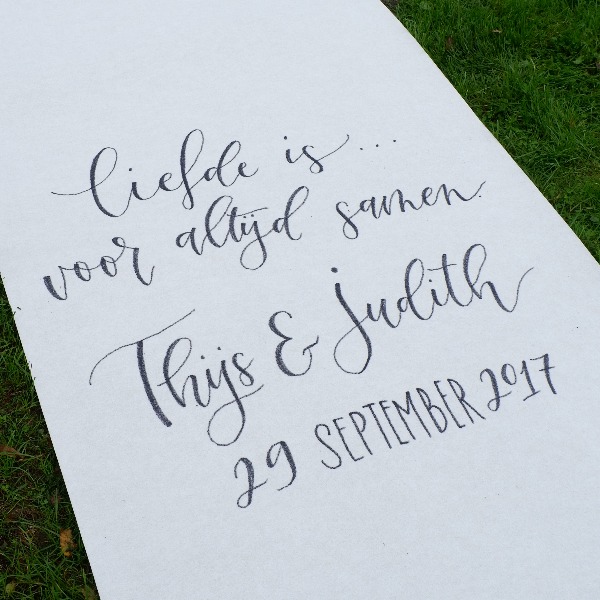 liefde is...
voor altijd samen.
Thijs & Judith
29 SEPTEMBER 2017